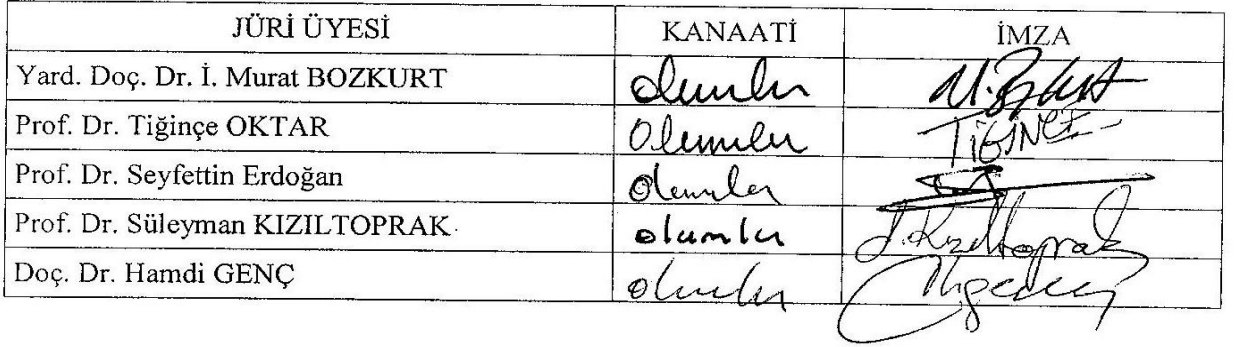 JÜRİ ÜYESİ KANAATİ İMZA
Yard. Doç. Dr. İ. Murat BOZKURT olumlu M. Bozkurt
Prof. Dr. Tiğinçe OKTAR Olumlu TİĞİNÇE
Prof. Dr. Seyfettin Erdoğan olumlu
Prof. Dr. Süleyman KIZILTOPRAK olumlu S. Kızıltoprak
Doç. Dr. Hamdi GENÇ olumlu